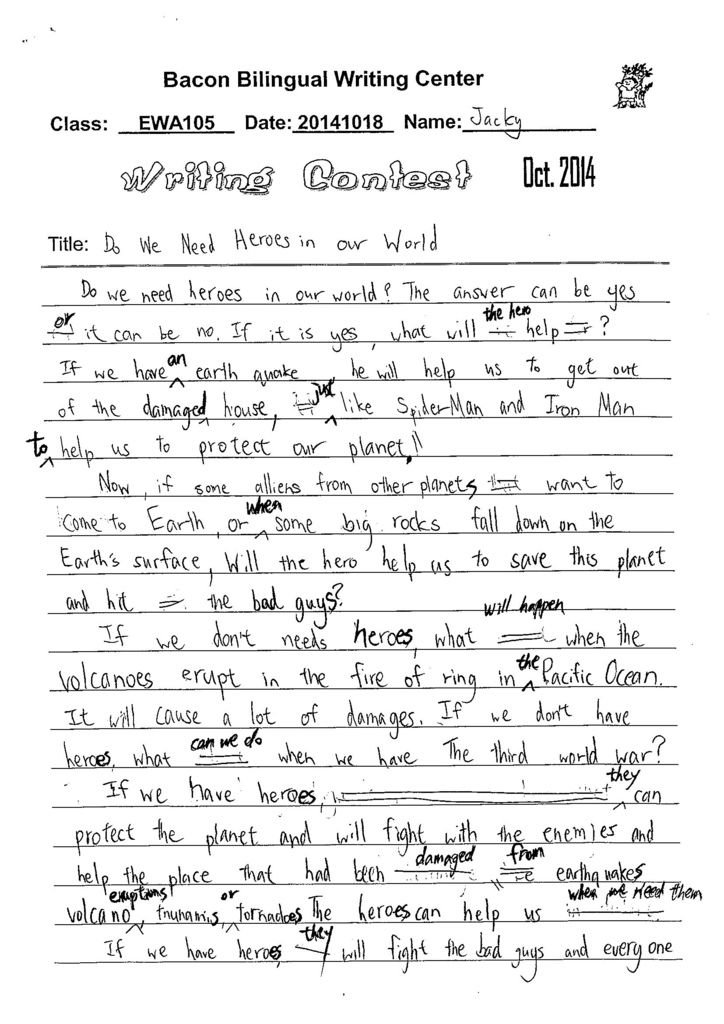 Bacon Bilingual Writing Center
Class: EWA105 Date: 20141018 Name: Jacky
Writing Contest Oct. 2014
Title: Do We Need Heroes in our World
Do we need heroes in our world? The answer can be yes
or it can be no. If it is yes, what will the hero help ?
If we have an earth quake, he will help us to get out
of the damaged house, just like Spider-Man and Iron Man
to help us to protect our planet.
Now, if some alliens from other planets want to
come to Earth, or when some big rocks fall down on the
Earth's surface, Will the hero help us to save this planet
and hit the bad guys?
If we don't needs heroes, what will happen when the
volcanoes erupt in the fire of ring in the Pacific Ocean.
It will cause a lot of damages. If we don't have
heroes, what can we do when we have The third world war?
If we have heroes, they can
protect the planet and will fight with the enemies and
help the place that had been damaged from earthquakes
volcano eruptions, tnunamis, or tornadoes The heroes can help us when we need them
If we have heroes they will fight the bad guys and every one